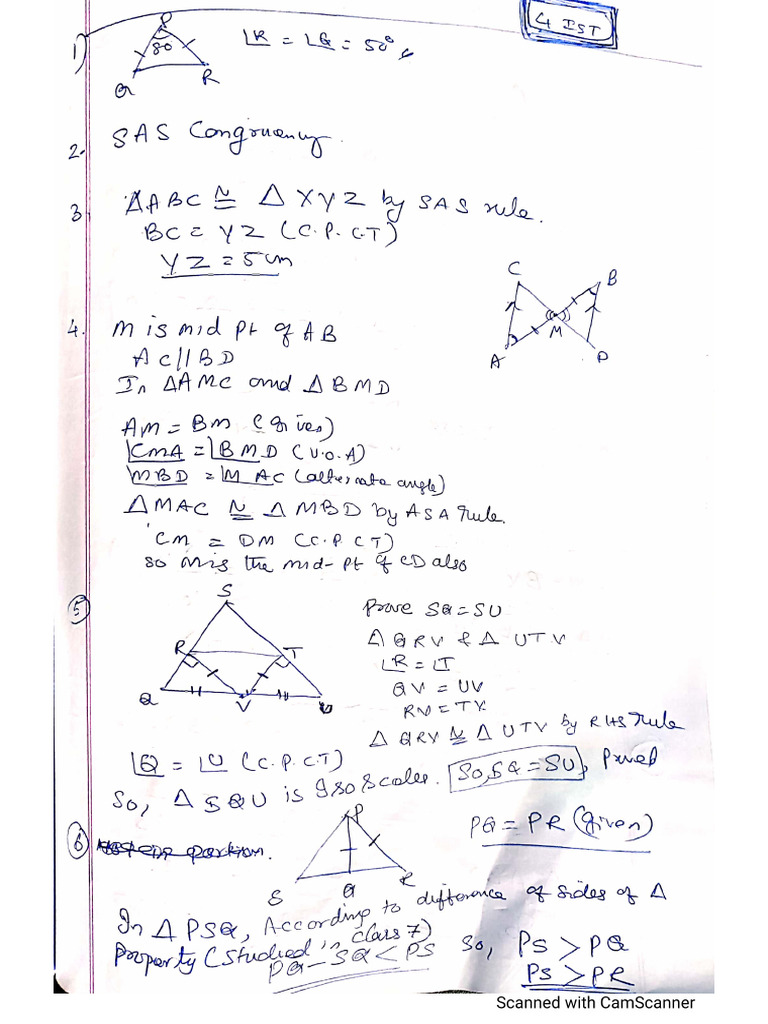 4 IST
1)
P
80
Q
R
∠R = ∠Q = 50°
2. SAS Congruency.
3. ΔABC ≅ Δ XYZ by SAS rule.
BC = YZ (C.P.C.T)
YZ = 5cm
C
B
M
A
D
4. M is mid pt of AB
AC//BD
In ΔAMC and ΔBMD
AM = BM (given)
∠CMA = ∠BMD (V.O.A)
∠MBD = ∠MAC (alternate angle)
ΔMAC ≅ ΔMBD by ASA rule.
CM = DM (C.P.CT)
so M is the mid-pt of CD also
5
S
R
T
Q
V
U
Prove SQ = SU
Δ QRV & Δ UTV
∠R = ∠T
QV = UV
RV = TV
Δ QRV ≅ Δ UTV by RHS rule
∠Q = ∠U (C.P.C.T)
So, Δ SQU is Isoscales. So, SQ = SU, Proved
6
portion.
P
S
Q
R
PQ = PR (given)
In Δ PSQ, According to difference of sides of Δ
Property (studied in class 7)
PQ - SQ < PS
So, PS > PQ
PS > PR
Scanned with CamScanner